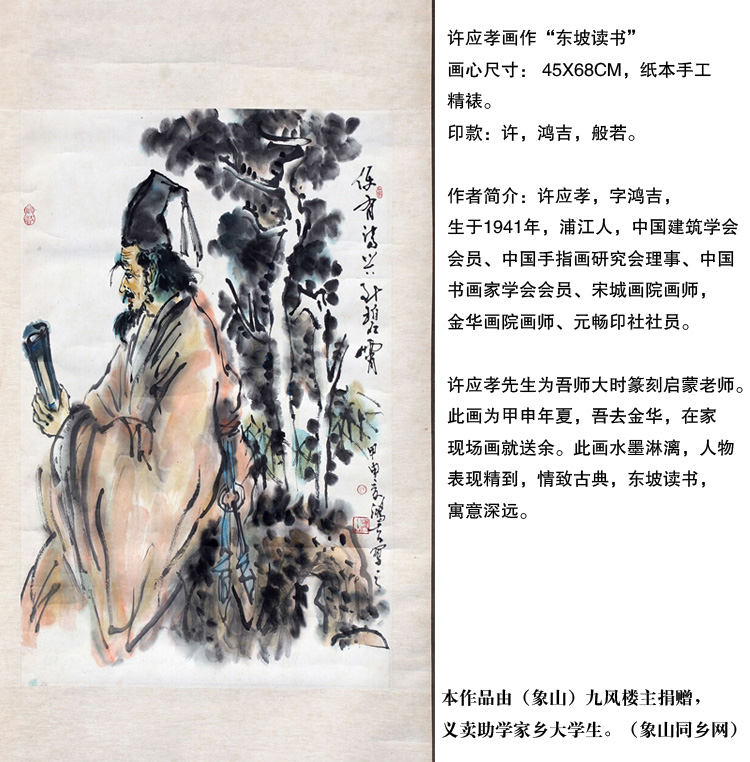 许应孝画作“东坡读书”
画心尺寸： 45X68CM，纸本手工
精裱。
印款：许，鸿吉，般若。
作者简介：许应孝，字鸿吉，
生于1941年，浦江人，中国建筑学会
会员、中国手指画研究会理事、中国
书画家学会会员、宋城画院画师，
金华画院画师、元畅印社社员。
许应孝先生为吾师大时篆刻启蒙老师。
此画为甲申年夏，吾去金华，在家
现场画就送余。此画水墨淋漓，人物
表现精到，情致古典，东坡读书，
寓意深远。
本作品由（象山）九风楼主捐赠，
义卖助学家乡大学生。（象山同乡网）
甲申夏鸿吉写之